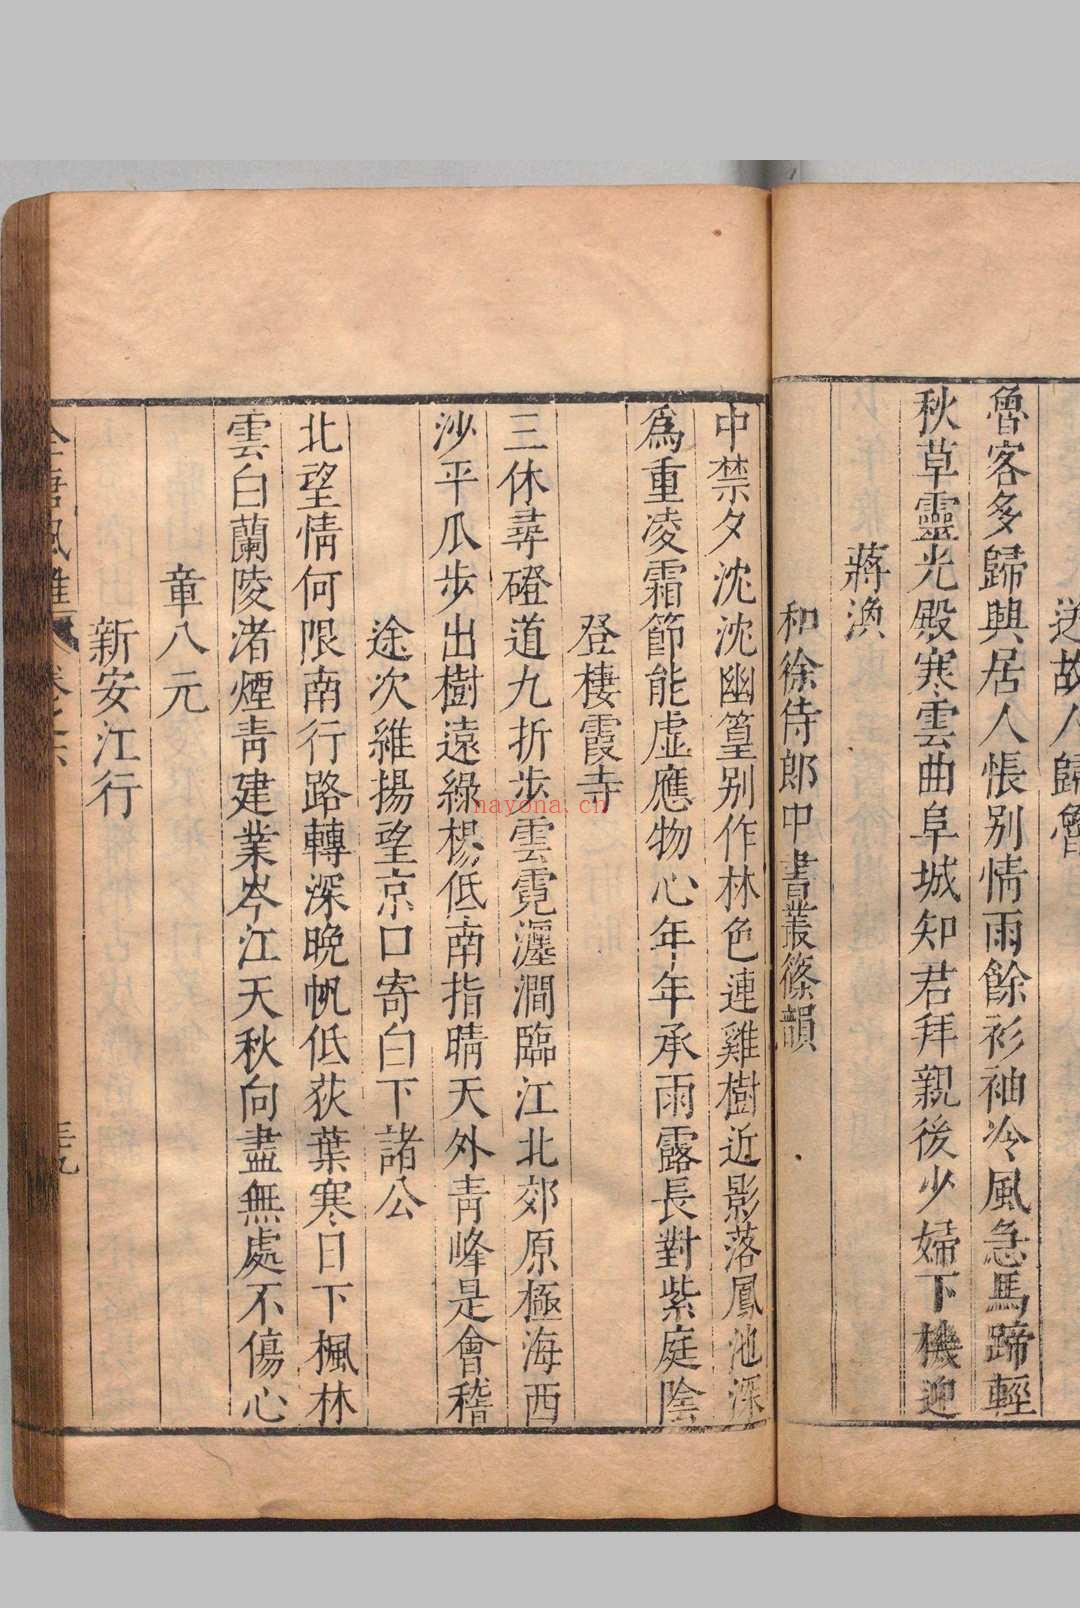 送故人歸魯
魯客多歸興居人悵別情雨餘衫袖冷風急馬蹄輕
秋草靈光殿寒雲曲阜城知君拜親後少婦下機迎
蔣渙
和徐侍郎中書叢篠韻
中禁夕沈沈幽篁別作林色連雞樹近影落鳳池深
為重凌霜節能虛應物心年年承雨露長對紫庭陰
登棲霞寺
三休尋磴道九折步雲霓瀍澗臨江北郊原極海西
沙平瓜步出樹遠綠楊低南指晴天外青峰是會稽
途次維揚望京口寄白下諸公
北望情何限南行路轉深晚帆低荻葉寒日下楓林
雲白蘭陵渚煙青建業岑江天秋向盡無處不傷心
章八元
新安江行
全唐風雅 卷之六 三九
nayona.cn